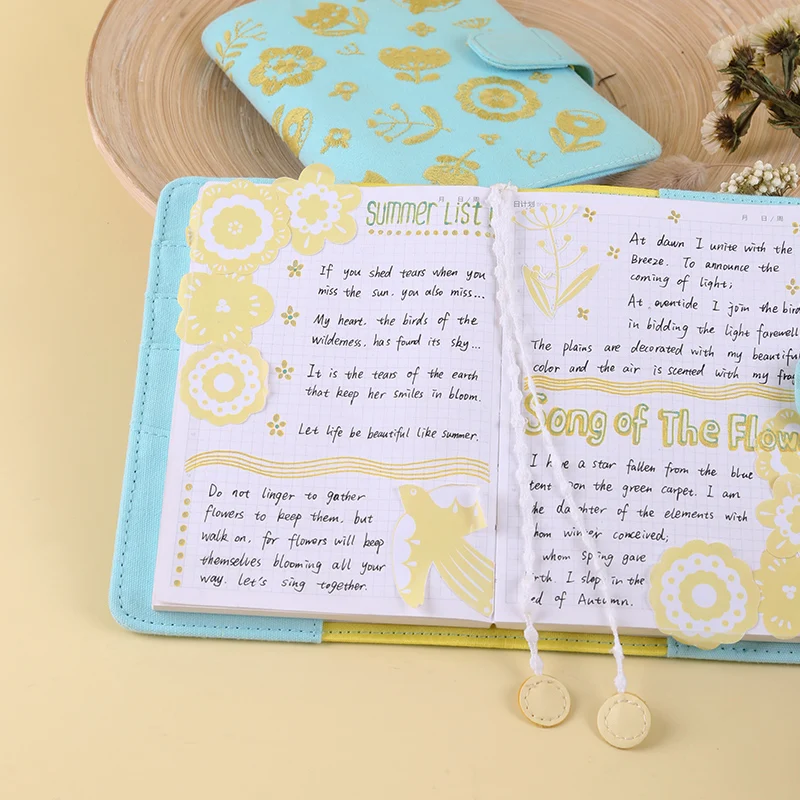 月 日/周
Summer List
If you shed tears when you
miss the sun. you also miss...
My heart, the birds of the
wilderness. has found its sky...
It is the tears of the earth
that keep her smiles in bloom.
Let life be beautiful like summer.
Do not linger to gather
flowers to keep them, but
walk on, for flowers will keep
themselves blooming all your
way. Let's sing together.
日计划
月 日/周
At dawn I unite with the
Breeze. To announce the
coming of light;
At eventide I join the bird
in bidding the light farewell
The plains are decorated with my beautiful
color and the air is scented with my fra
Song of The Flow
I a star fallen from the blue
tent on the green carpet. I am
he daughter of the elements with
hom winter conceived;
whom Spring gave
irth. I slep in the
ed of Autumn.